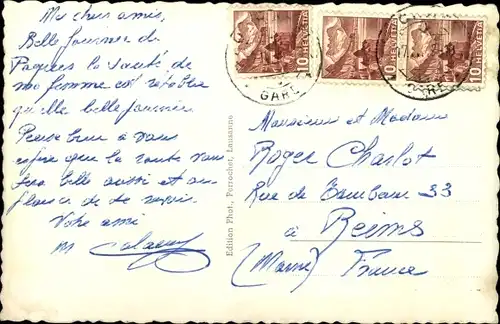 Mes chers amis,
Belle journée de
Pâques la santé de
ma femme est
qu'elle belle journée
Pense bien à vous
espère que la santé vous
sera belle aussi et au
plaisir de se revoir.
Votre ami
M
HELVETIA 10
HELVETIA 10
HELVETIA 10
GARE
GARE
Edition Phot. Perrochet, Lausanne
Monsieur et Madame
Roger Charlot
Rue de 33
à
Reims
(Marne) France